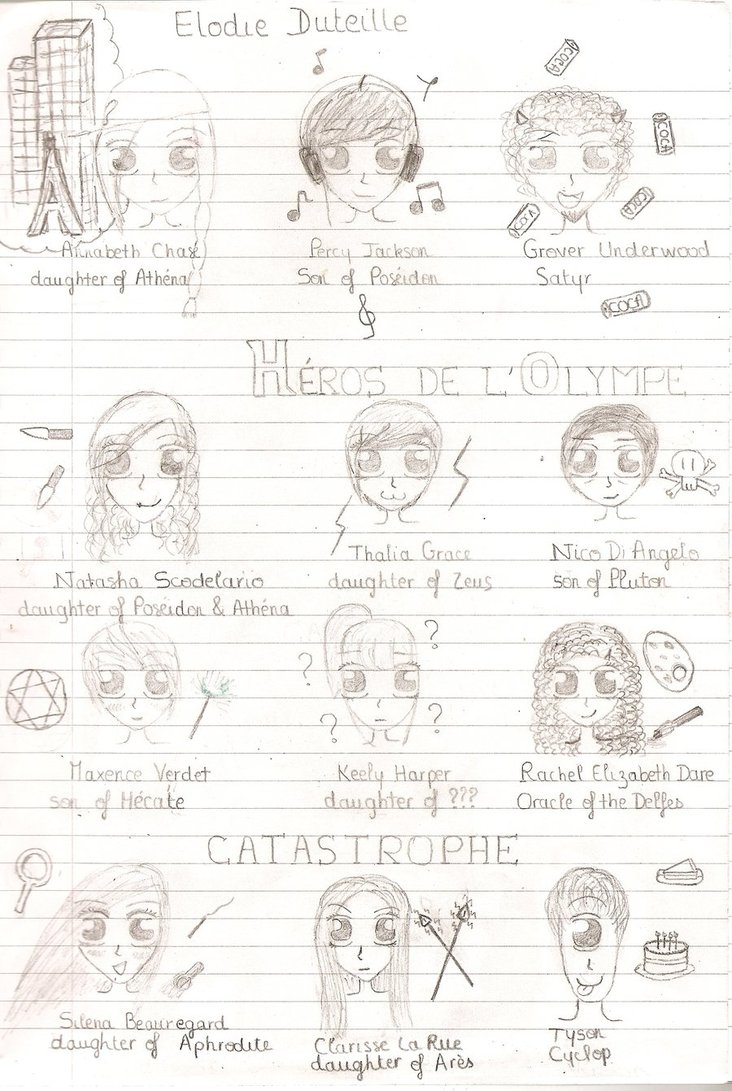 Elodie Duteille
COCA
COCA
COCA
COCA
A
Annabeth Chase
daughter of Athéna
Percy Jackson
Son of Poséidon
Grover Underwood
Satyr
COCA
HÉROS DE L'OLYMPE
Natasha Scodelario
daughter of Poséidon & Athéna
Thalia Grace
daughter of Zeus
Nico Di Angelo
son of Pluton
?
?
?
?
Maxence Verdet
son of Hécate
Keely Harper
daughter of ???
Rachel Elizabeth Dare
Oracle of the Delfes
CATASTROPHE
Silena Beauregard
daughter of Aphrodite
Clarisse La Rue
daughter of Arès
Tyson
Cyclop